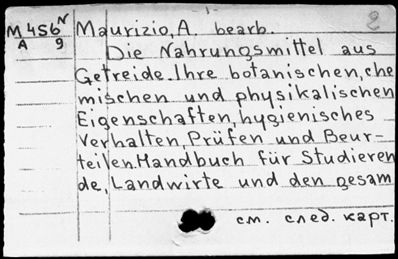 - 1 -
M 456 N Maurizio, A. bearb.
A 9 Die Nahrungsmittel aus
Getreide. Ihre botanischen, che
mischen und physikalischen
Eigenschaften, hygienisches
Verhalten, Prüfen und Beur-
teilen. Handbuch für Studieren
de, Landwirte und den gesam
см. след. карт.